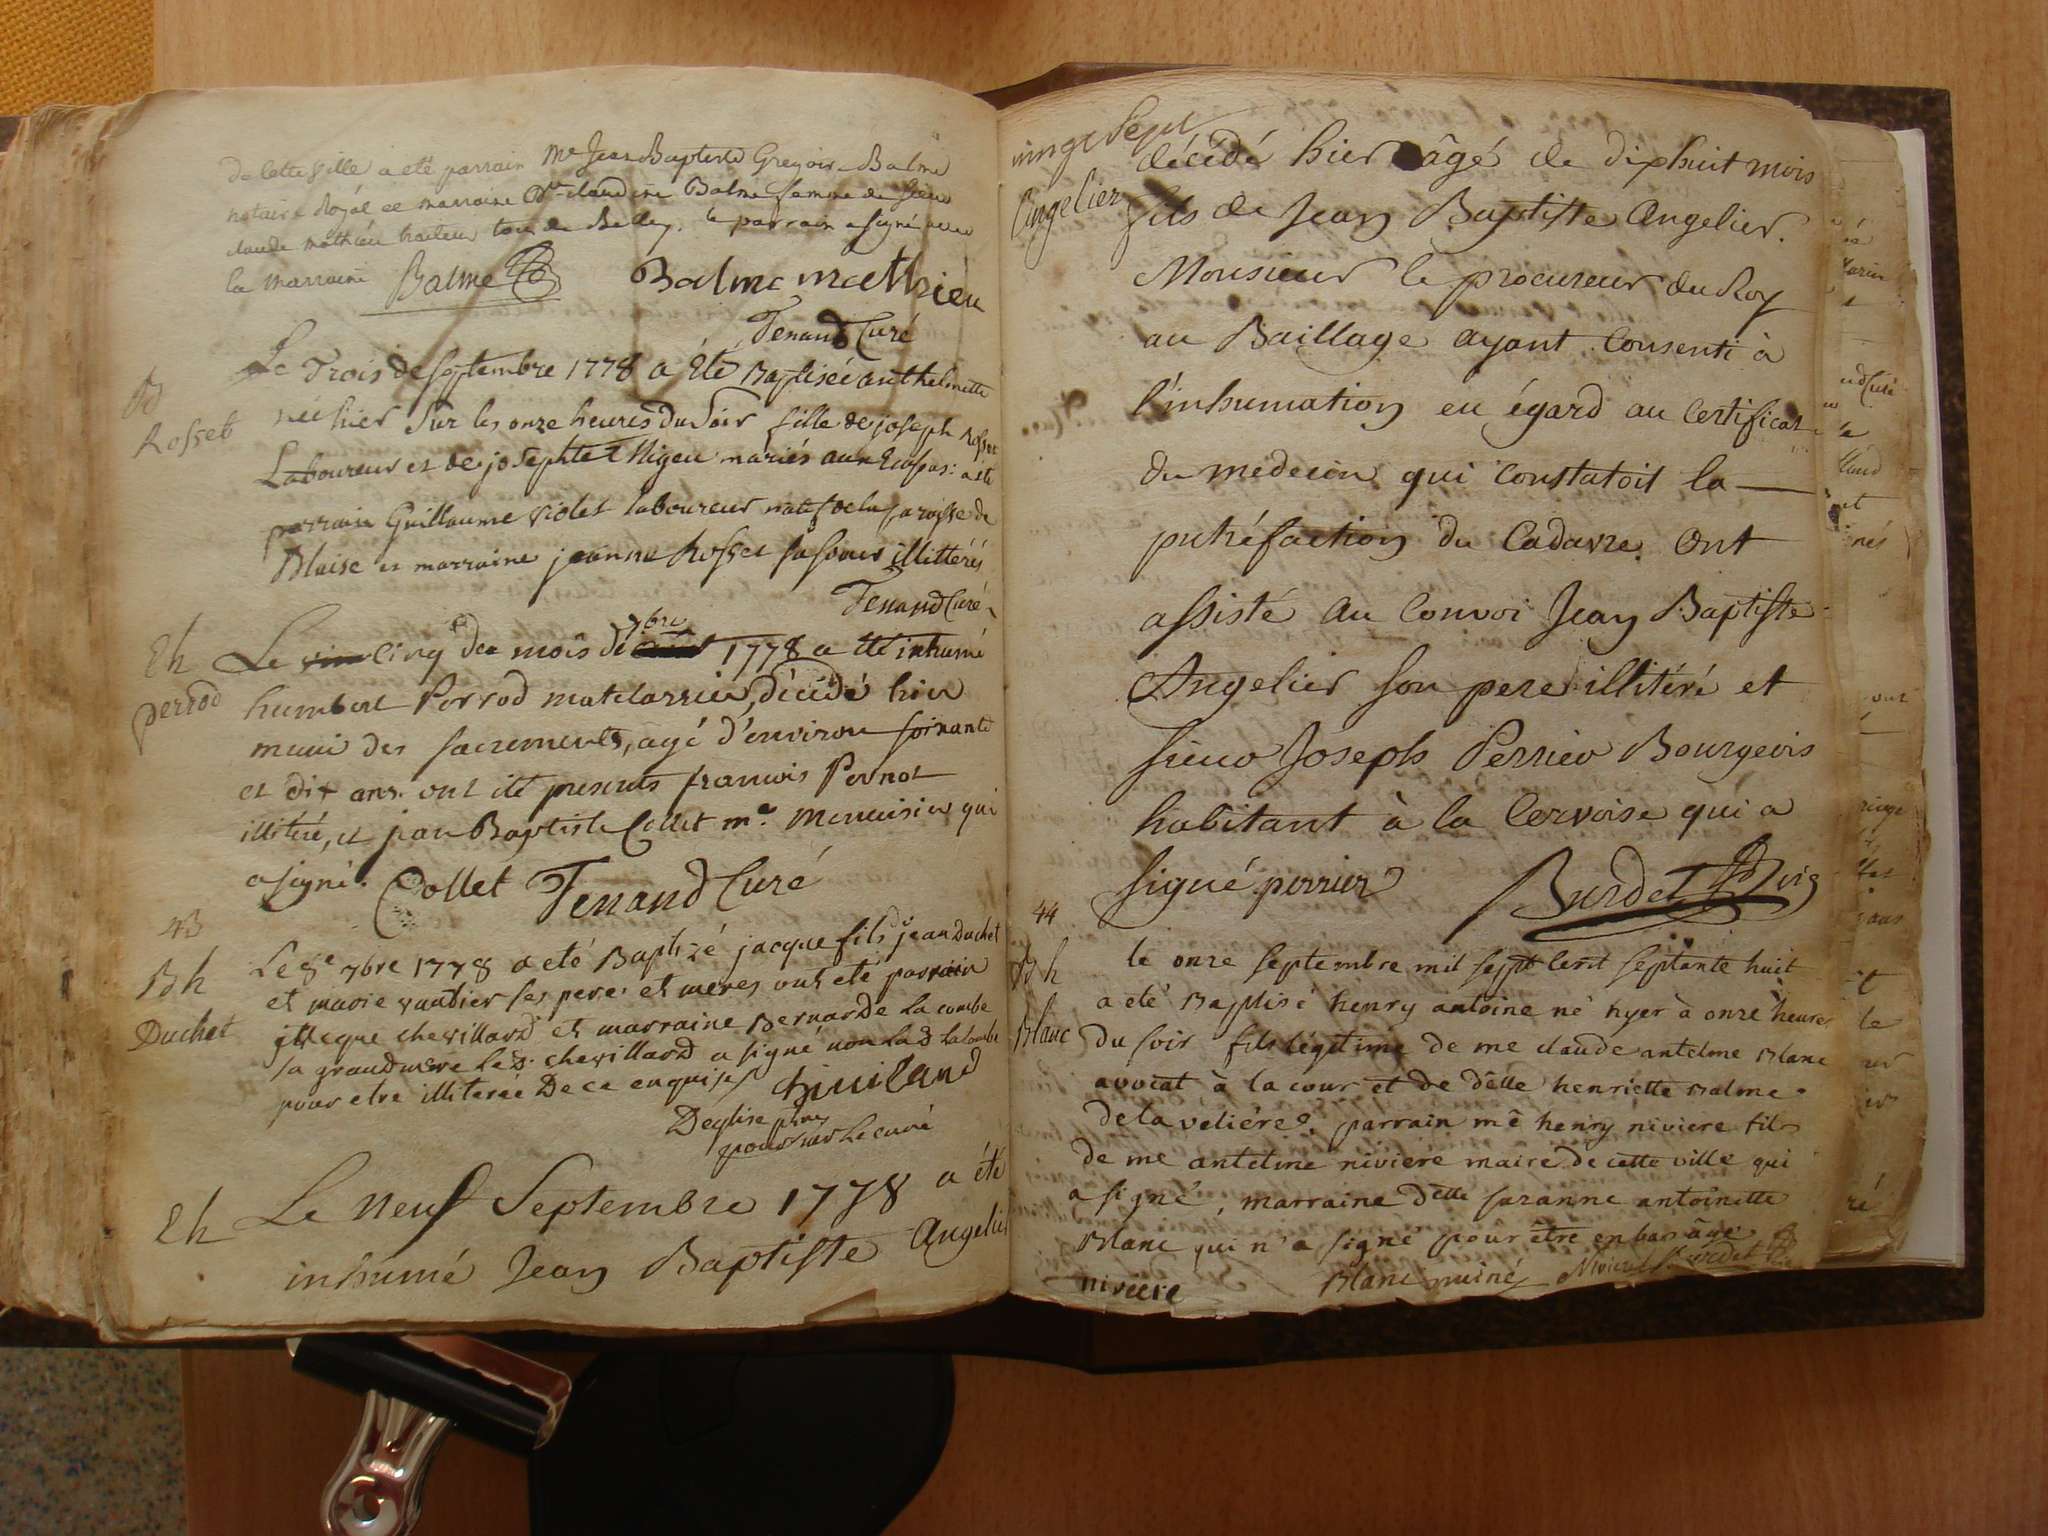 de cette ville a été parrain Me Jean Baptiste Gregoire Balme
notaire Royal et marraine Dlle claudine Balme femme de Sieur
claude mathieu de Belley. le parrain a signé avec
la marraine Balme Balme mathieu
Tenand Curé
B
Rosset
Le Trois de septembre 1778 a Été Baptisée anthelmette
née hier sur les onze heures du soir fille de joseph Rosset
Laboureur et de josephte Nigeu mariés aux Ecassas: a été
parrain Guillaume violet laboureur natif de la paroisse de
Blaise et marraine jeanne Rosset sa soeur illittérés
Tenand Curé
Eh
perrod
Le cinq du mois de 7bre 1778 a été inhumé
humbert Perrod matelassier, décédé hier
muni des sacrements, agé d'environ soixante
et dix ans. ont été presents francois Pernot
illitéré, et jean Baptiste Collet me. Menuisier qui
a signé. Collet Tenand Curé
43
Bh
Duchet
Le 8e 7bre 1778 a eté Baptizé jacque fils d jean Duchet
et marie vautier ses pere et meres ont eté parrain
jacque chevillard et marraine Bernarde la combe
sa grandmere le d. chevillard a signé non la d lacombe
pour etre illiterée De ce enquises chiviland
Deglise ptre
pour sur Le curé
Eh
Le neuf Septembre 1778 a été
inhumé Jean Baptiste Angelier
vingt Sept
Angelier
décédé hier âgé de dixhuit mois
fils de Jean Baptiste Angelier.
Monsieur le procureur du Roy
au Baillage ayant Consenti à
l'inhumation eu égard au Certificat
du medecin qui Constatoit la
putréfaction du Cadavre. Ont
assisté au Convoi Jean Baptiste
Angelier son pere illitéré et
sieur Joseph Perrier Bourgeois
habitant à la Cervoise qui a
signé perrier Burdet vic
44
Bh
Blanc
le onze septembre mil sept cent septante huit
a eté Baptisé henry antoine né hyer à onze heures
du soir fils légitime de me claude antelme Blanc
avocat à la cour et de delle henriette Balme
de la veliére. parrain me henry niviere fils
de me antelme niviere maire de cette ville qui
a signé, marraine delle suzanne antoinette
Blanc qui n'a signé pour être en bas âge
niviere Blanc puiné Niviere Burdet vic